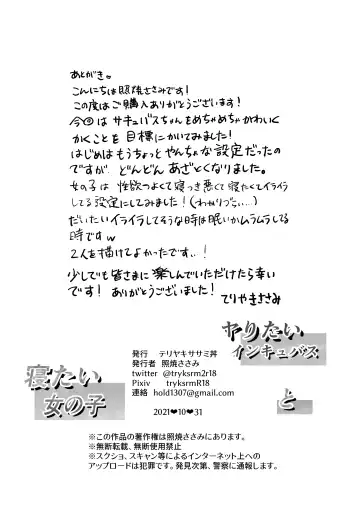 あとがき。
こんにちは照焼ささみです!
この度はご購入ありがとうございます!
今回はサキュバスちゃんをめちゃめちゃかわいく
かくことを目標にかいてみました!
はじめはもうちょっとやんちゃな設定だったの
ですが どんどんあざとくなりました。
女の子は 性欲つよくて寝つき悪くて寝たくてイライラ
してる設定にしてみました!(わかりづらい…)
だいたいイライラしてそうな時は眠いかムラムラしてる
時ですw
2人を描けてよかったです…!
少しでも皆さまに楽しんでいただけたら幸い
です! ありがとうございました!
てりやきささみ
ヤりたい
インキュバス
と
寝たい
女の子
発行 テリヤキササミ丼
発行者 照焼ささみ
twitter @tryksrm2r18
Pixiv tryksrmR18
連絡 hold1307@gmail.com
2021❤10❤31
※この作品の著作権は照焼ささみにあります。
※無断転載、無断使用禁止
※スクショ、スキャン等によるインターネット上への
アップロードは犯罪です。発見次第、警察に通報します。